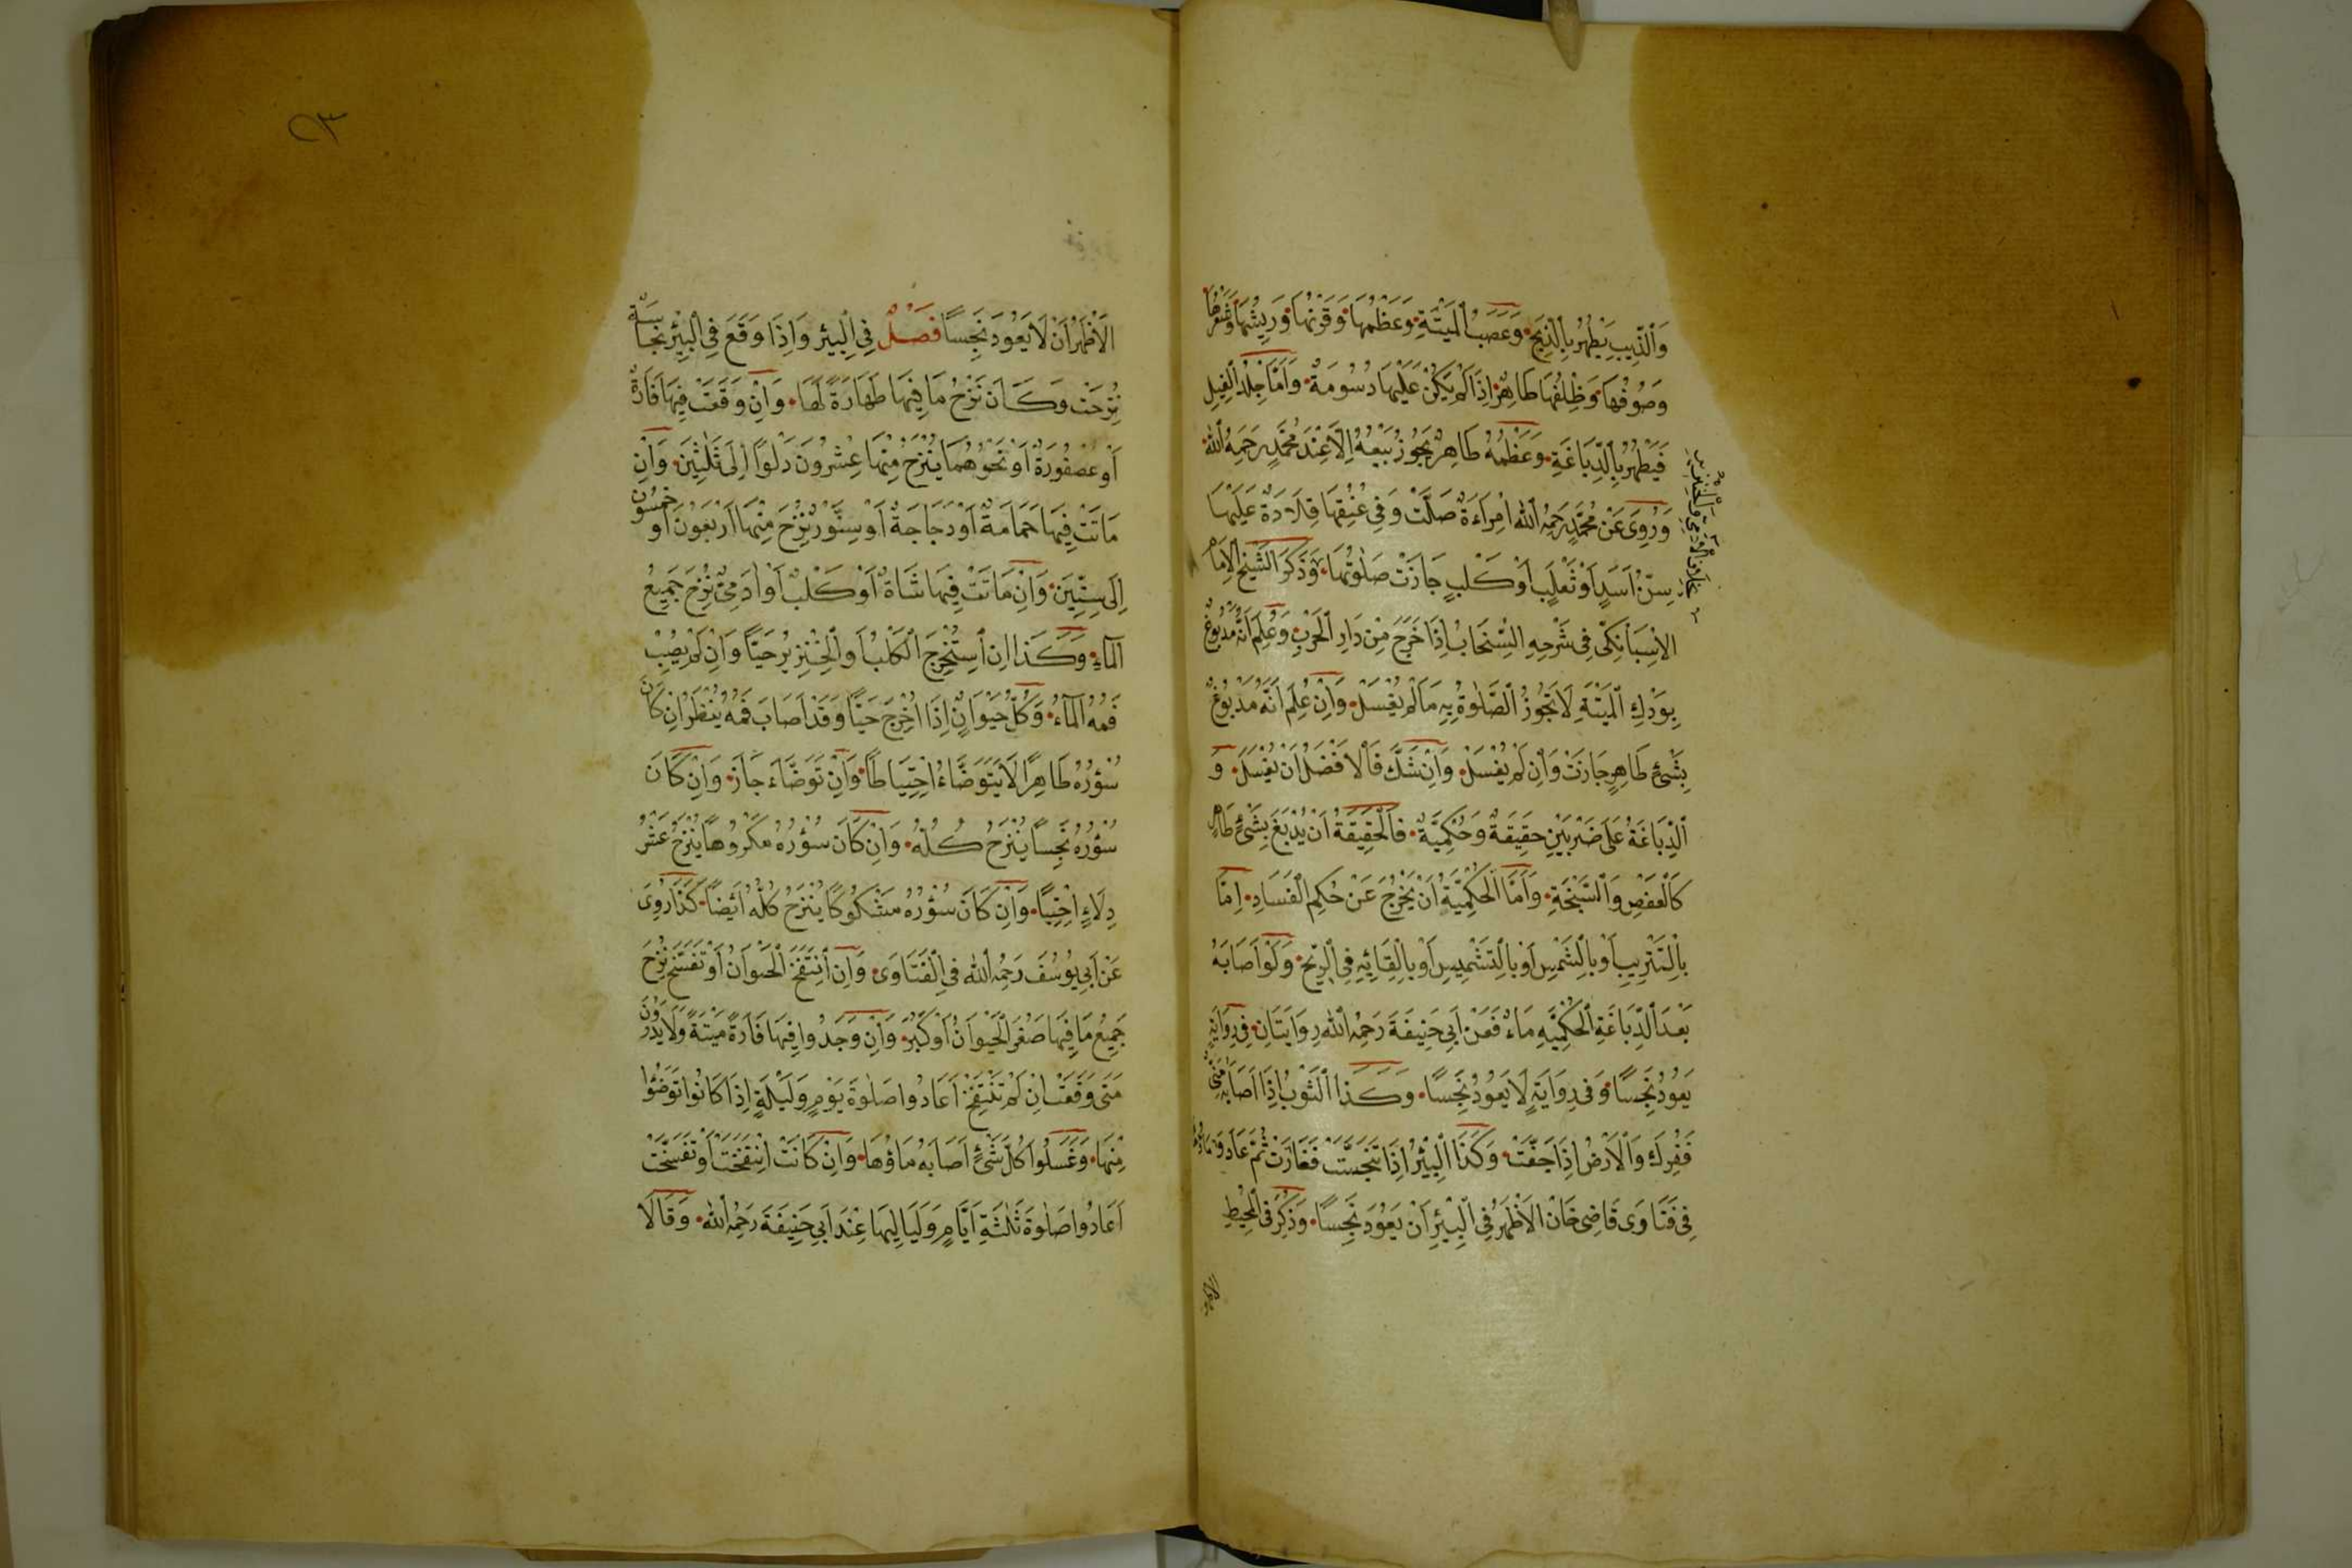 وَالذِّئِبِ يَطْهُرُ بِالذَّبْحِ وَعَصَبُ الْمَيْتَةِ وَعَظْمُهَا وَقَرْنُهَا وَرِيشُهَا وَشَعْرُهَا
وَصُوفُهَا وَظِلْفُهَا طَاهِرٌ اِذَا لَمْ يَكُنْ عَلَيْهَا دُسُومَةٌ وَاَمَّا جِلْدُ الْفِيلِ
فَيَطْهُرُ بِالدِّبَاغَةِ وَعَظْمُهُ طَاهِرٌ يَجُوزُ بَيْعُهُ اِلَّا عِنْدَ مُحَمَّدٍ رَحِمَهُ اللّٰهُ
وَرُوِىَ عَنْ مُحَمَّدٍ رَحِمَهُ اللّٰه اِمْرَاَةٌ صَلَّتْ وَفِى عُنُقِهَا قِلَادَةٌ عَلَيْهَا
سِنُّ اَسَدٍ اَوْ ثَعْلَبٍ اَوْ كَلْبٍ جَازَتْ صَلٰوتُهَا وَذَكَرَ الشَّيْخُ الْاِمَامُ
الْاِسْبَانِكَتِّى فِى شَرْحِهِ السِّنْجَابُ اِذَا خَرَجَ مِنْ دَارِ الْحَرْبِ وَعُلِمَ اَنَّهُ مَدْبُوغٌ
بِوَدَكِ الْمَيْتَةِ لَا تَجُوزُ الصَّلٰوةُ بِهِ مَا لَمْ يُغْسَلْ وَاِنْ عُلِمَ اَنَّهُ مَدْبُوغٌ
بِشَىْءٍ طَاهِرٍ جَازَتْ وَاِنْ لَمْ يُغْسَلْ وَاِنْ شَكَّ فَالْاَفْضَلُ اَنْ يُغْسَلَ وَ
الدِّبَاغَةُ عَلَى ضَرْبَيْنِ حَقِيقَةٌ وَحُكْمِيَّةٌ فَالْحَقِيقَةُ اَنْ يُدْبَغَ بِشَىْءٍ طَاهِرٍ
كَالْعَفْصِ وَالسَّبْخَةِ وَاَمَّا الْحُكْمِيَّةُ اَنْ يَخْرُجَ عَنْ حُكْمِ الْفَسَادِ اِمَّا
بِالتَّتْرِيبِ اَوْ بِالشَّمْسِ اَوْ بِالتَّشْمِيسِ اَوْ بِالْقَائِهِ فِى الرِّيْحِ وَلَوْ اَصَابَهُ
بَعْدَ الدِّبَاغَةِ الْحُكْمِيَّةِ مَاءٌ فَعَنْ اَبِى حَنِيفَةَ رَحِمَهُ اللّٰه رِوَايَتَانِ فِى رِوَايَةٍ
يَعُودُ نَجِسًا وَفِى رِوَايَةٍ لَا يَعُودُ نَجِسًا وَكَذَا الثَّوْبُ اِذَا اَصَابَهُ مَنِىٌّ
فَفُرِكَ وَالْاَرْضُ اِذَا جَفَّتْ وَكَذَا الْبِئْرُ اِذَا تَنَجَّسَتْ فَغَارَتْ ثُمَّ عَادَ مَاؤُهَا
فِى فَتَاوَى قَاضِى خَانْ الْاَظْهَرُ فِى الْبِئْرِ اَنْ يَعُودَ نَجِسًا وَذُكِرَ فِى الْمُحِيطِ
بخلاف الآدمى والخنزير
الْاَظْهَرُ اَنْ لَا يَعُودَ نَجِسًا فَصْلٌ فِى الْبِئْرِ وَاِذَا وَقَعَ فِى الْبِئْرِ نَجَاسَةٌ
نُزِحَتْ وَكَانَ نَزْحُ مَا فِيهَا طَهَارَةً لَهَا وَاِنْ وَقَعَتْ فِيهَا فَارَةٌ
اَوْ عُصْفُورَةٌ اَوْ نَحْوُهُمَا يُنْزَحُ مِنْهَا عِشْرُونَ دَلْوًا اِلَى ثَلٰثِينَ وَاِنْ
مَاتَتْ فِيهَا حَمَامَةٌ اَوْ دَجَاجَةٌ اَوْ سِنَّوْرٌ نُزِحَ مِنْهَا اَرْبَعُونَ اَوْ خَمْسُونَ
اِلَى سِتِّينَ وَاِنْ مَاتَتْ فِيهَا شَاةٌ اَوْ كَلْبٌ اَوْ اٰدَمِىٌّ نُزِحَ جَمِيعُ
الْمَاءِ وَكَذَا اِنِ اسْتُخْرِجَ الْكَلْبُ اَوِ الْخِنْزِيرُ حَيًّا وَاِنْ لَمْ يُصِبْ
فَمُهُ الْمَاءَ وَكُلُّ حَيَوَانٍ اِذَا اُخْرِجَ حَيًّا وَقَدْ اَصَابَ فَمُهُ يُنْظَرُ اِنْ كَانَ
سُؤْرُهُ طَاهِرًا لَا يَتَوَضَّاءُ اِحْتِيَاطًا وَاِنْ تَوَضَّاءَ جَازَ وَاِنْ كَانَ
سُؤْرُهُ نَجِسًا يُنْزَحُ كُلُّهُ وَاِنْ كَانَ سُؤْرُهُ مَكْرُوهًا يُنْزَحُ عَشْرُ
دِلَاءٍ اِحْتِيَاطًا وَاِنْ كَانَ سُؤْرُهُ مَشْكُوكًا يُنْزَحُ كُلُّهُ اَيْضًا كَذَا رُوِىَ
عَنْ اَبِى يُوسُفَ رَحِمَهُ اللّٰه فِى الْفَتَاوَى وَاِنِ انْتَفَخَ الْحَيَوَانُ اَوْ تَفَسَّخَ نُزِحَ
جَمِيعُ مَا فِيهَا صَغُرَ الْحَيَوَانُ اَوْ كَبُرَ وَاِنْ وَجَدُوا فِيهَا فَارَةً مَيْتَةً وَلَا يَدْرُونَ
مَتَى وَقَعَتْ اِنْ لَمْ تَنْتَفِخْ اَعَادُوا صَلٰوةَ يَوْمٍ وَلَيْلَةٍ اِذَا كَانُوا تَوَضَّؤُا
مِنْهَا وَغَسَلُوا كُلَّ شَىْءٍ اَصَابَهُ مَاؤُهَا وَاِنْ كَانَتْ اِنْتَفَخَتْ اَوْ تَفَسَّخَتْ
اَعَادُوا صَلٰوةَ ثَلٰثَةِ اَيَّامٍ وَلَيَالِيهَا عِنْدَ اَبِى حَنِيفَةَ رَحِمَهُ اللّٰه وَقَالَا